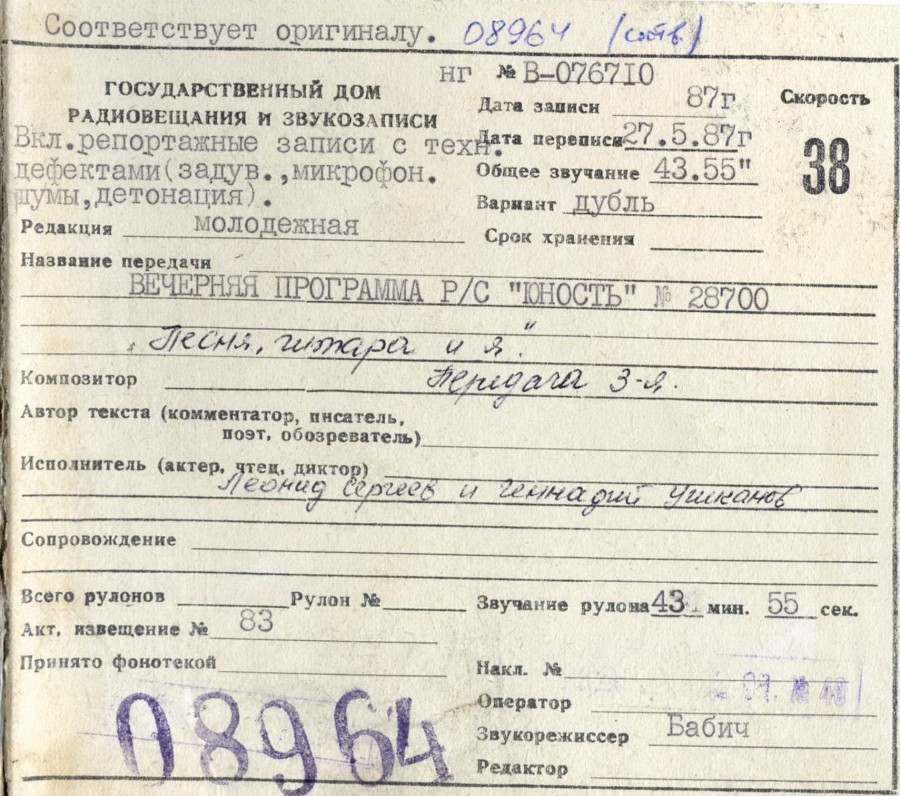 Соответствует оригиналу. 08964
нг № В-076710
ГОСУДАРСТВЕННЫЙ ДОМ
РАДИОВЕЩАНИЯ И ЗВУКОЗАПИСИ
Дата записи 87г
Скорость
38
Вкл.репортажные записи с техн.
дефектами(задув.,микрофон.
шумы,детонация).
Дата переписи 27.5.87г
Общее звучание 43.55"
Вариант дубль
Редакция молодежная
Срок хранения
Название передачи
ВЕЧЕРНЯЯ ПРОГРАММА Р/С "ЮНОСТЬ" № 28700
„Песня, гитара и я"
Композитор
Передача 3-я.
Автор текста (комментатор, писатель,
поэт, обозреватель)
Исполнитель (актер, чтец, диктор)
Леонид Сергеев и Геннадий Ушканов
Сопровождение
Всего рулонов Рулон № Звучание рулона 43 мин. 55 сек.
Акт. извещение № 83
Принято фонотекой
Накл. №
Оператор
08964
Звукорежиссер Бабич
Редактор